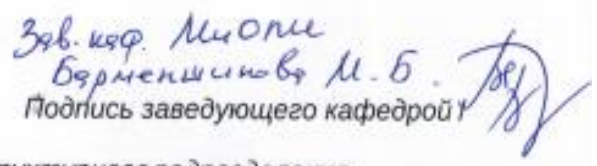 Зав. каф. МиОПИ
Барменшинова М. Б.
Подпись заведующего кафедрой